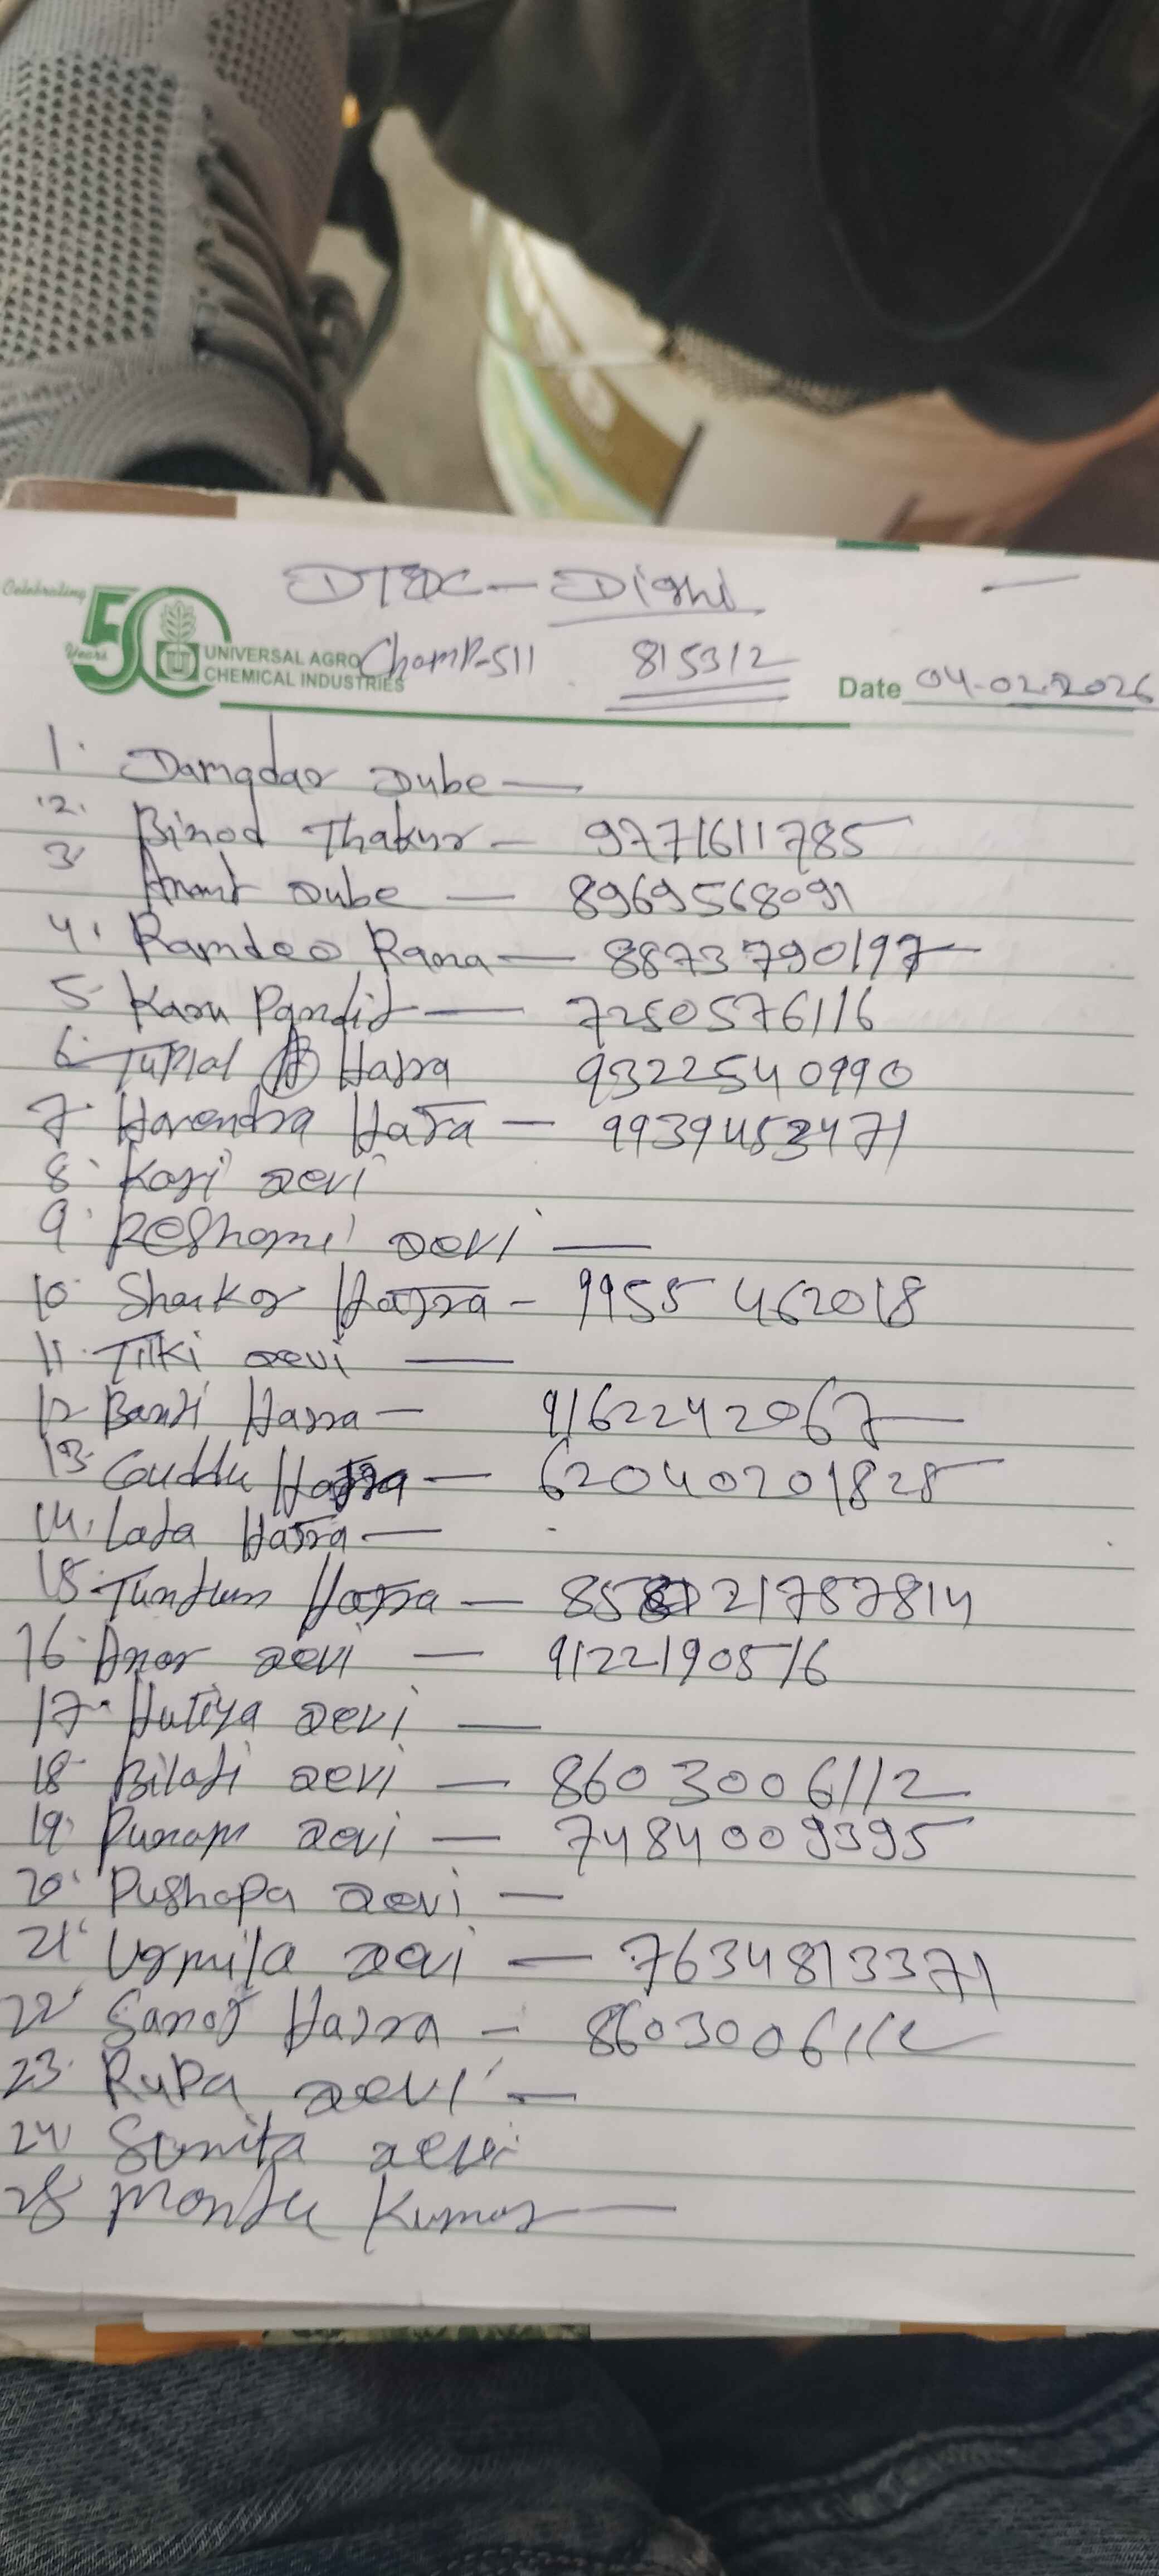 DTDC - Dighi
Celebrating 50 Years
UNIVERSAL AGRO CHEMICAL INDUSTRIES
ChomP-511 815312
Date 04-02-2026
1. Damqdar Dube —
2. Binod Thakur - 9771611785
3. Anant Dube — 8969568091
4. Ramdeo Rana — 8873790197
5. Karu Pandit — 7250576116
6. Tuplal Hazra 9322540990
7. Harendra Hazra — 9939453471
8. Kari Devi
9. Reshami Devi —
10. Shankar Hazra - 9955462018
11. Tilki Devi —
12. Banti Hazra — 9162242067
13. Guddu Hazra — 62040201828
14. Lata Hazra —
15. Tuntun Hazra — 21787814
16. Anar Devi — 9122190576
17. Hutiya Devi —
18. Bilati Devi — 8603006112
19. Punam Devi — 7484009395
20. Pushapa Devi —
21. Urmila Devi — 7634813371
22. Sanoj Hazra - 8603006112
23. Rupa Devi —
24. Sunita Devi
25. Montu Kumar —